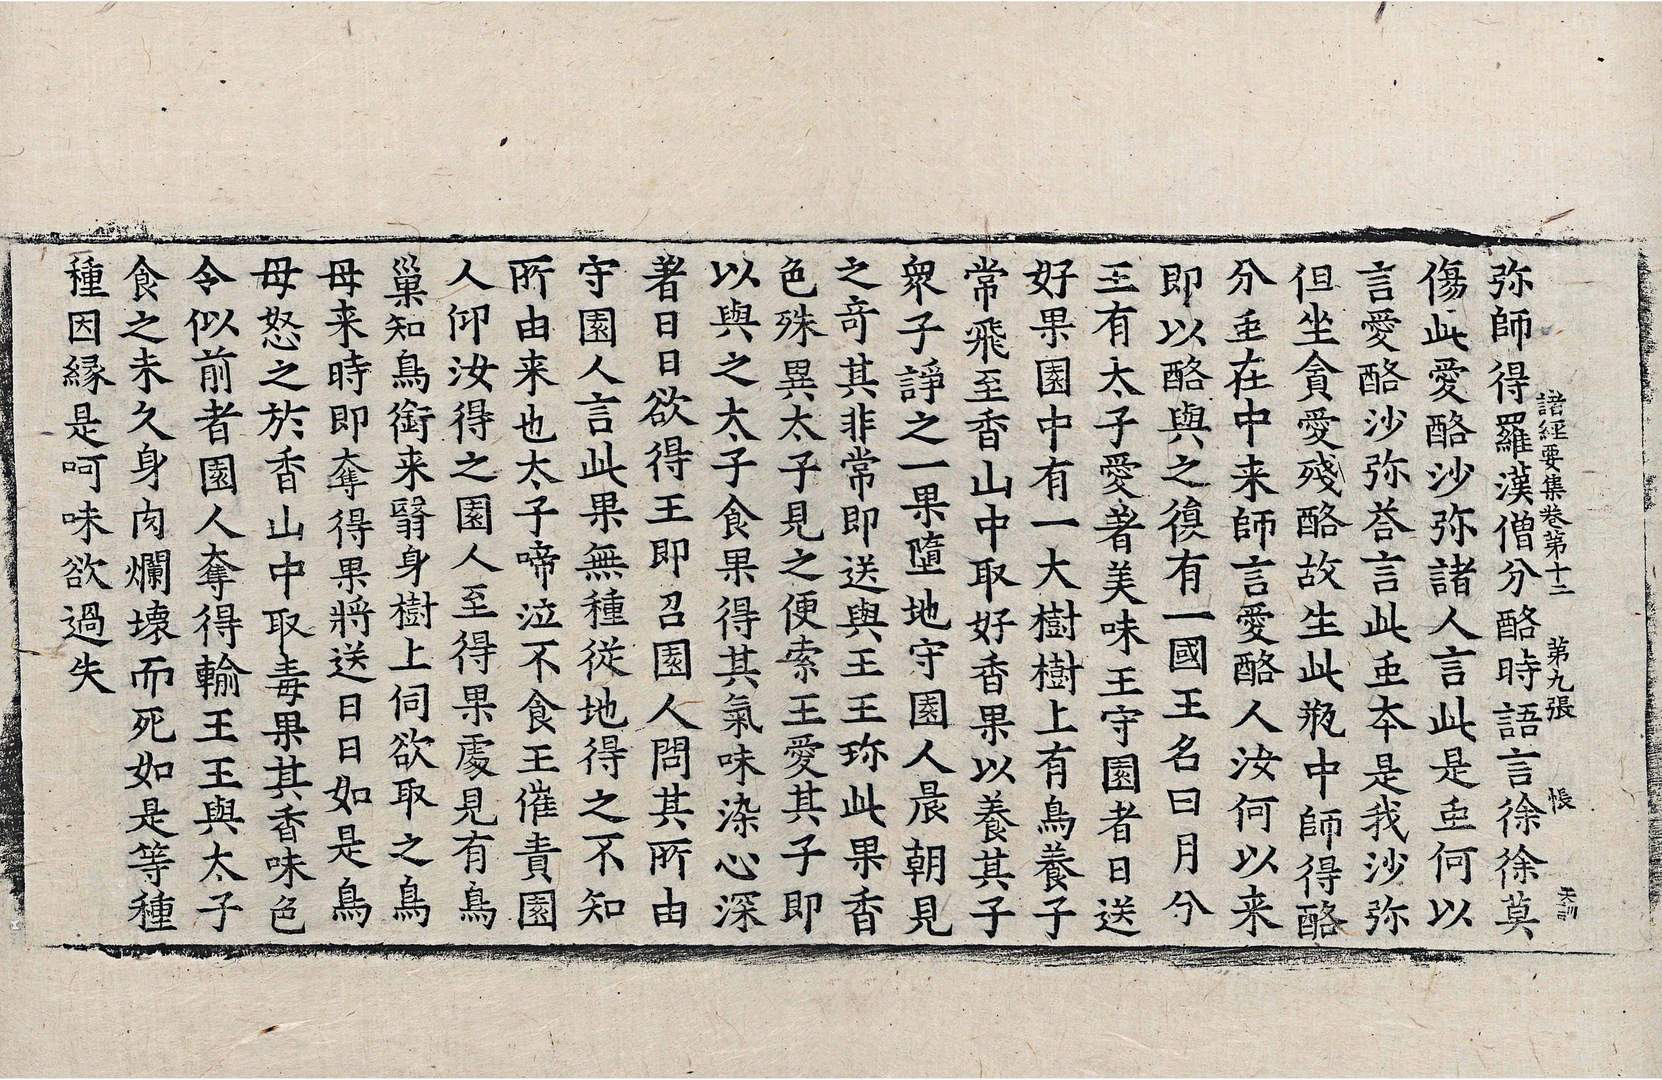 弥師得羅漢僧分酪時語言徐徐莫
諸經要集卷第十二 第九張 悵 天訓
傷此愛酪沙弥諸人言此是䖝何以
言愛酪沙弥荅言此䖝本是我沙弥
但坐貪愛殘酪故生此瓶中師得酪
分䖝在中来師言愛酪人汝何以来
即以酪與之復有一國王名曰月分
王有太子愛著美味王守園者日送
好果園中有一大樹樹上有鳥養子
常飛至香山中取好香果以養其子
衆子諍之一果墮地守園人晨朝見
之竒其非常即送與王王珎此果香
色殊異太子見之便索王愛其子即
以與之太子食果得其氣味染心深
著日日欲得王即召園人問其所由
守園人言此果無種從地得之不知
所由来也太子啼泣不食王催責園
人仰汝得之園人至得果處見有鳥
巢知鳥銜来翳身樹上伺欲取之鳥
母来時即奪得果將送日日如是鳥
母怒之於香山中取毒果其香味色
令似前者園人奪得輸王王與太子
食之未久身肉爛壞而死如是等種
種因縁是呵味欲過失